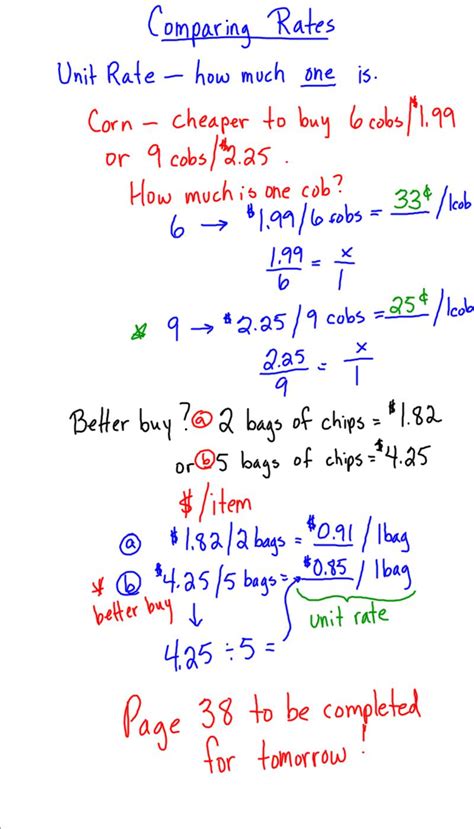 Comparing Rates
Unit Rate — how much one is.
Corn — cheaper to buy 6 cobs/$1.99
or 9 cobs/$2.25.
How much is one cob?
6 → $1.99/6 cobs = 33¢/1cob
1.99/6 = x/1
* 9 → $2.25/9 cobs = 25¢/1cob
2.25/9 = x/1
Better buy? ⓐ 2 bags of chips = $1.82
or ⓑ 5 bags of chips = $4.25
$/item
ⓐ $1.82/2 bags = $0.91/1bag
* ⓑ $4.25/5 bags = $0.85/1bag
better buy ↓ unit rate
4.25 ÷ 5 =
Page 38 to be completed
for tomorrow!